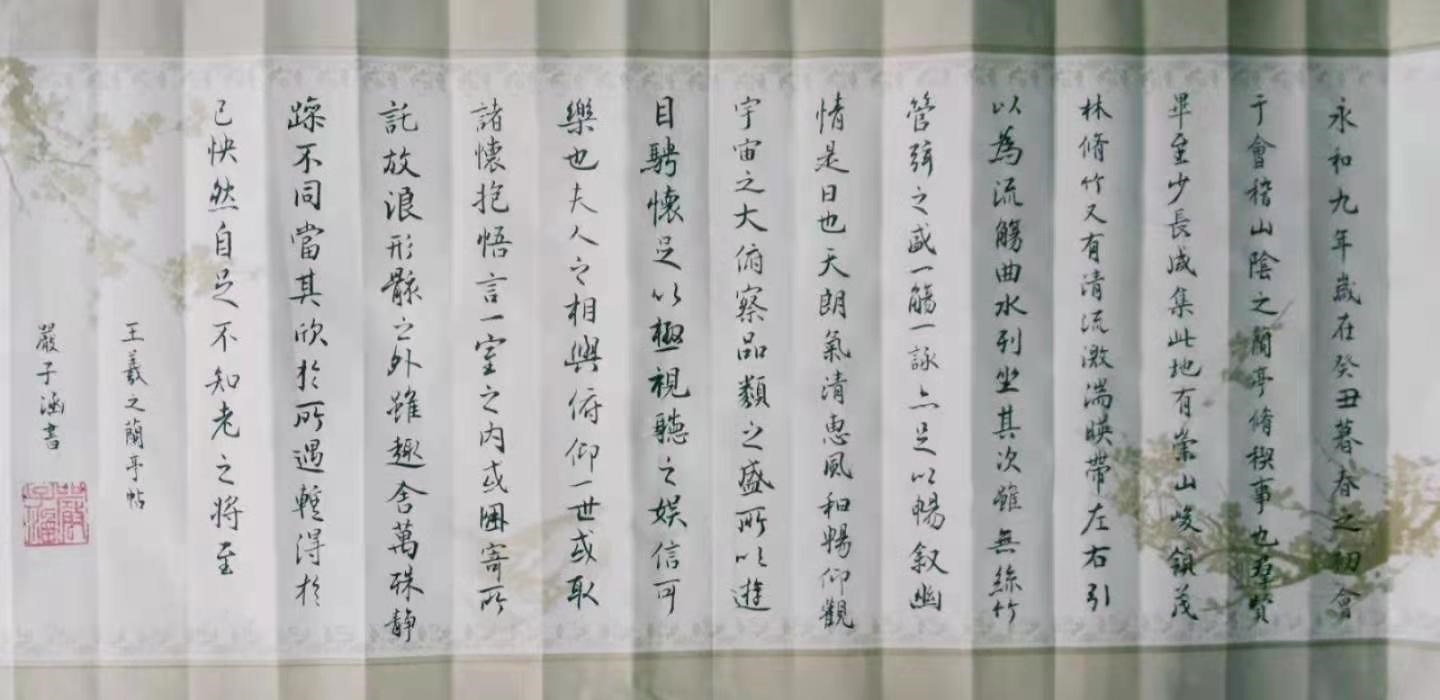 永和九年歲在癸丑暮春之初會
于會稽山陰之蘭亭脩稧事也羣賢
畢至少長咸集此地有崇山峻領茂
林脩竹又有清流激湍暎帶左右引
以為流觴曲水列坐其次雖無絲竹
管弦之盛一觴一詠亦足以暢叙幽
情是日也天朗氣清惠風和暢仰觀
宇宙之大俯察品類之盛所以遊
目騁懷足以極視聽之娛信可
樂也夫人之相與俯仰一世或取
諸懷抱悟言一室之內或因寄所
託放浪形骸之外雖趣舍萬殊靜
躁不同當其欣於所遇蹔得於
己快然自足不知老之將至
王羲之蘭亭帖
嚴子涵書